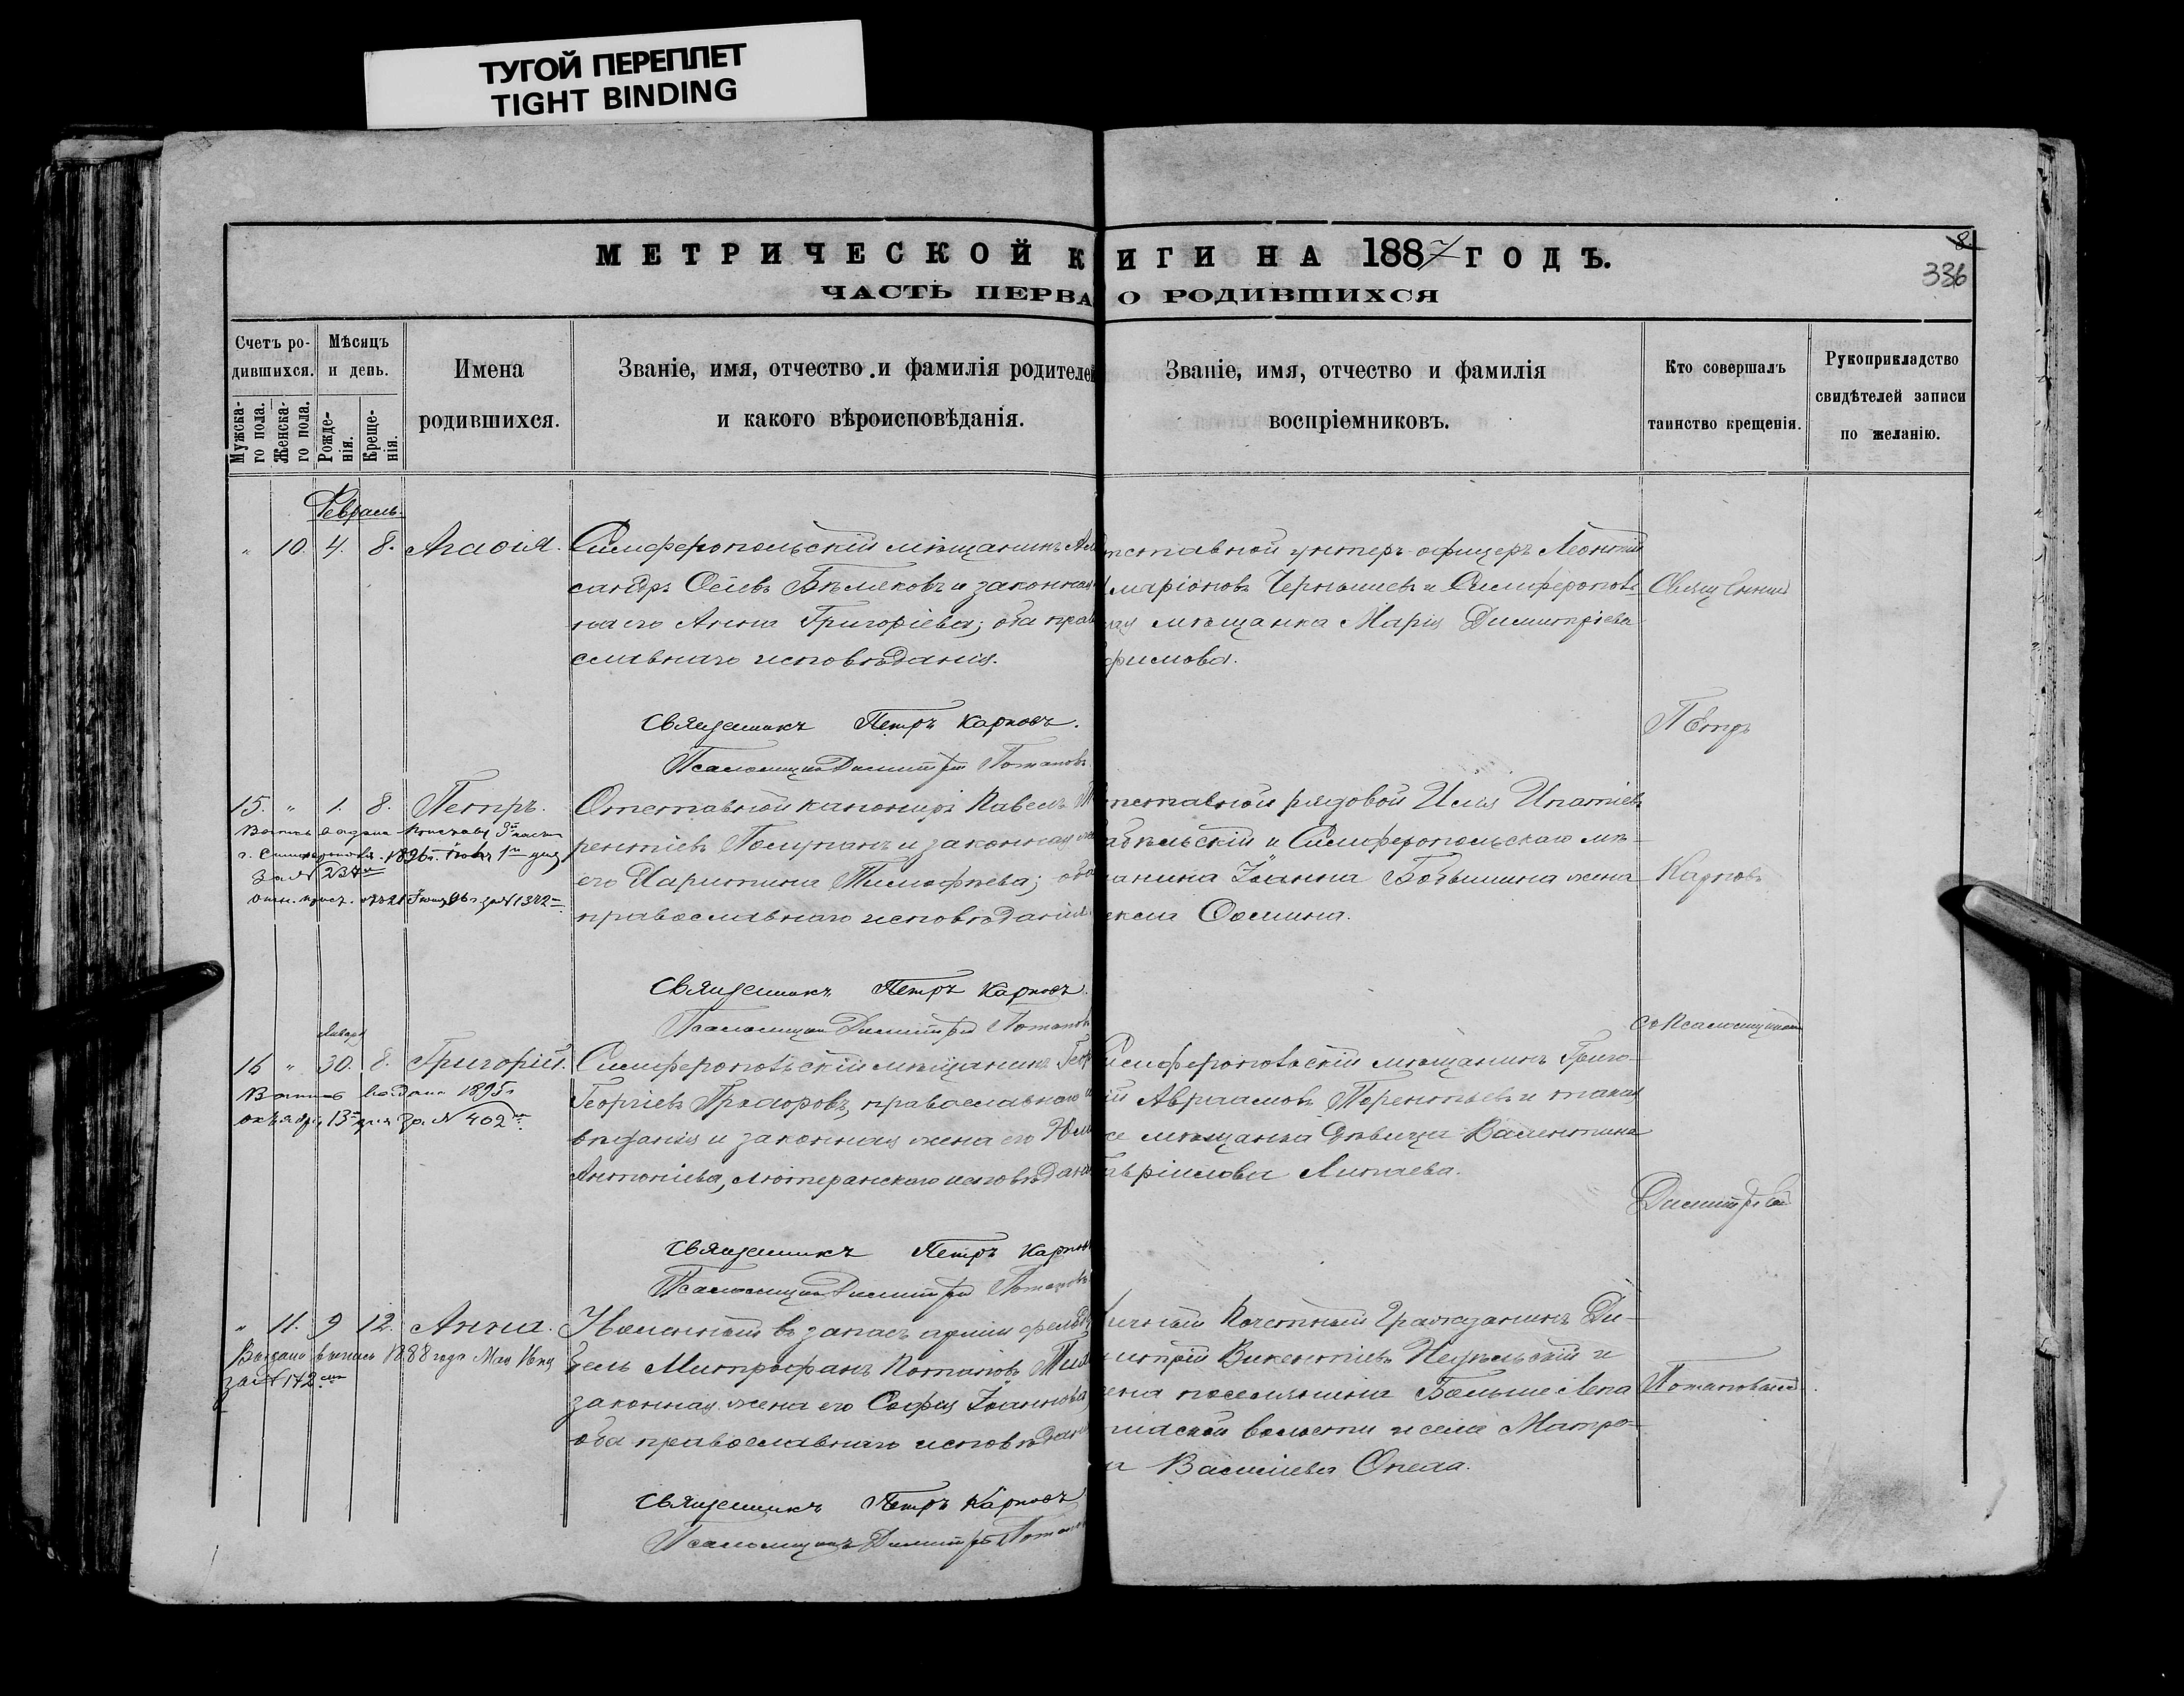 ТУГОЙ ПЕРЕПЛЕТ
TIGHT BINDING
МЕТРИЧЕСКОЙ К ИГИ НА 1887 ГОДЪ.
8
336
ЧАСТЬ ПЕРВА О РОДИВШИХСЯ
Счетъ ро-
дившихся.
Мужска-
го пола.
Женска-
го пола.
Мѣсяцъ
и день.
Рожде-
нія.
Креще-
нія.
Имена
родившихся.
Званіе, имя, отчество и фамилія родителей
и какого вѣроисповѣданія.
Званіе, имя, отчество и фамилія
воспріемниковъ.
Кто совершалъ
таинство крещенія.
Рукоприкладство
свидѣтелей записи
по желанію.
Февраль.
" 10. 4. 8. Агаѳія.
Симферопольскій мѣщанинъ Але
сандръ Бѣляковъ и законная
на его Анна Григоріева; оба прав
славнаго исповѣданія.
Священникъ Петръ Карповъ.
Псаломщикъ Димитрій Потаповъ
тставной унтеръ-офицеръ Леонтій
ларіоновъ Чернышевъ и Симферополь-
ная мѣщанка Марія Димитріева
фимова.
15. " 1. 8. Петръ.
г. Симферополя. 1896 г.
за № 234
за № 1342
Отставной канониръ Павелъ Т
рентіевъ и законная же
его Харитина Тимофѣева; оба
православнаго исповѣданія
Священникъ Петръ Карповъ.
Псаломщикъ Димитрій Потаповъ
тставной рядовой Илія Ипатіевъ
и Симферопольскаго мѣ-
анина Іоанна жена
Ѳомина.
Января
16 " 30. 8. Григорій.
выдана 1895 г.
октября 13 дня за № 402
Симферопольскій мѣщанинъ Геор
Георгіевъ православнаго и
вѣданія и законная жена его Юлі
Антоніева, лютеранскаго исповѣдан
Священникъ Петръ Карповъ
Псаломщикъ Димитрій Потаповъ
имферопольскій мѣщанинъ Григо-
ій Авраамовъ Терентьевъ и такая
же мѣщанка дѣвица Валентина
авріилова Липаева.
" 11. 9 12. Анна.
Выдана выпись 1888 года Мая
за № 142
Уволенный въ запасъ арміи фельдф
бель Митрофанъ Потаповъ
законная жена его Софія Іоаннова,
оба православнаго исповѣдан
Священникъ Петръ Карповъ
Псаломщикъ Димитрій Потаповъ
ичный Почетный Гражданинъ Ди-
митрій Викентіевъ и
ена поселянина Больше Лепа
тихской волости и села Матро-
а Васильева
Священникъ
Петръ
Карповъ
съ Псаломщикомъ
Димитріемъ
Потаповымъ.